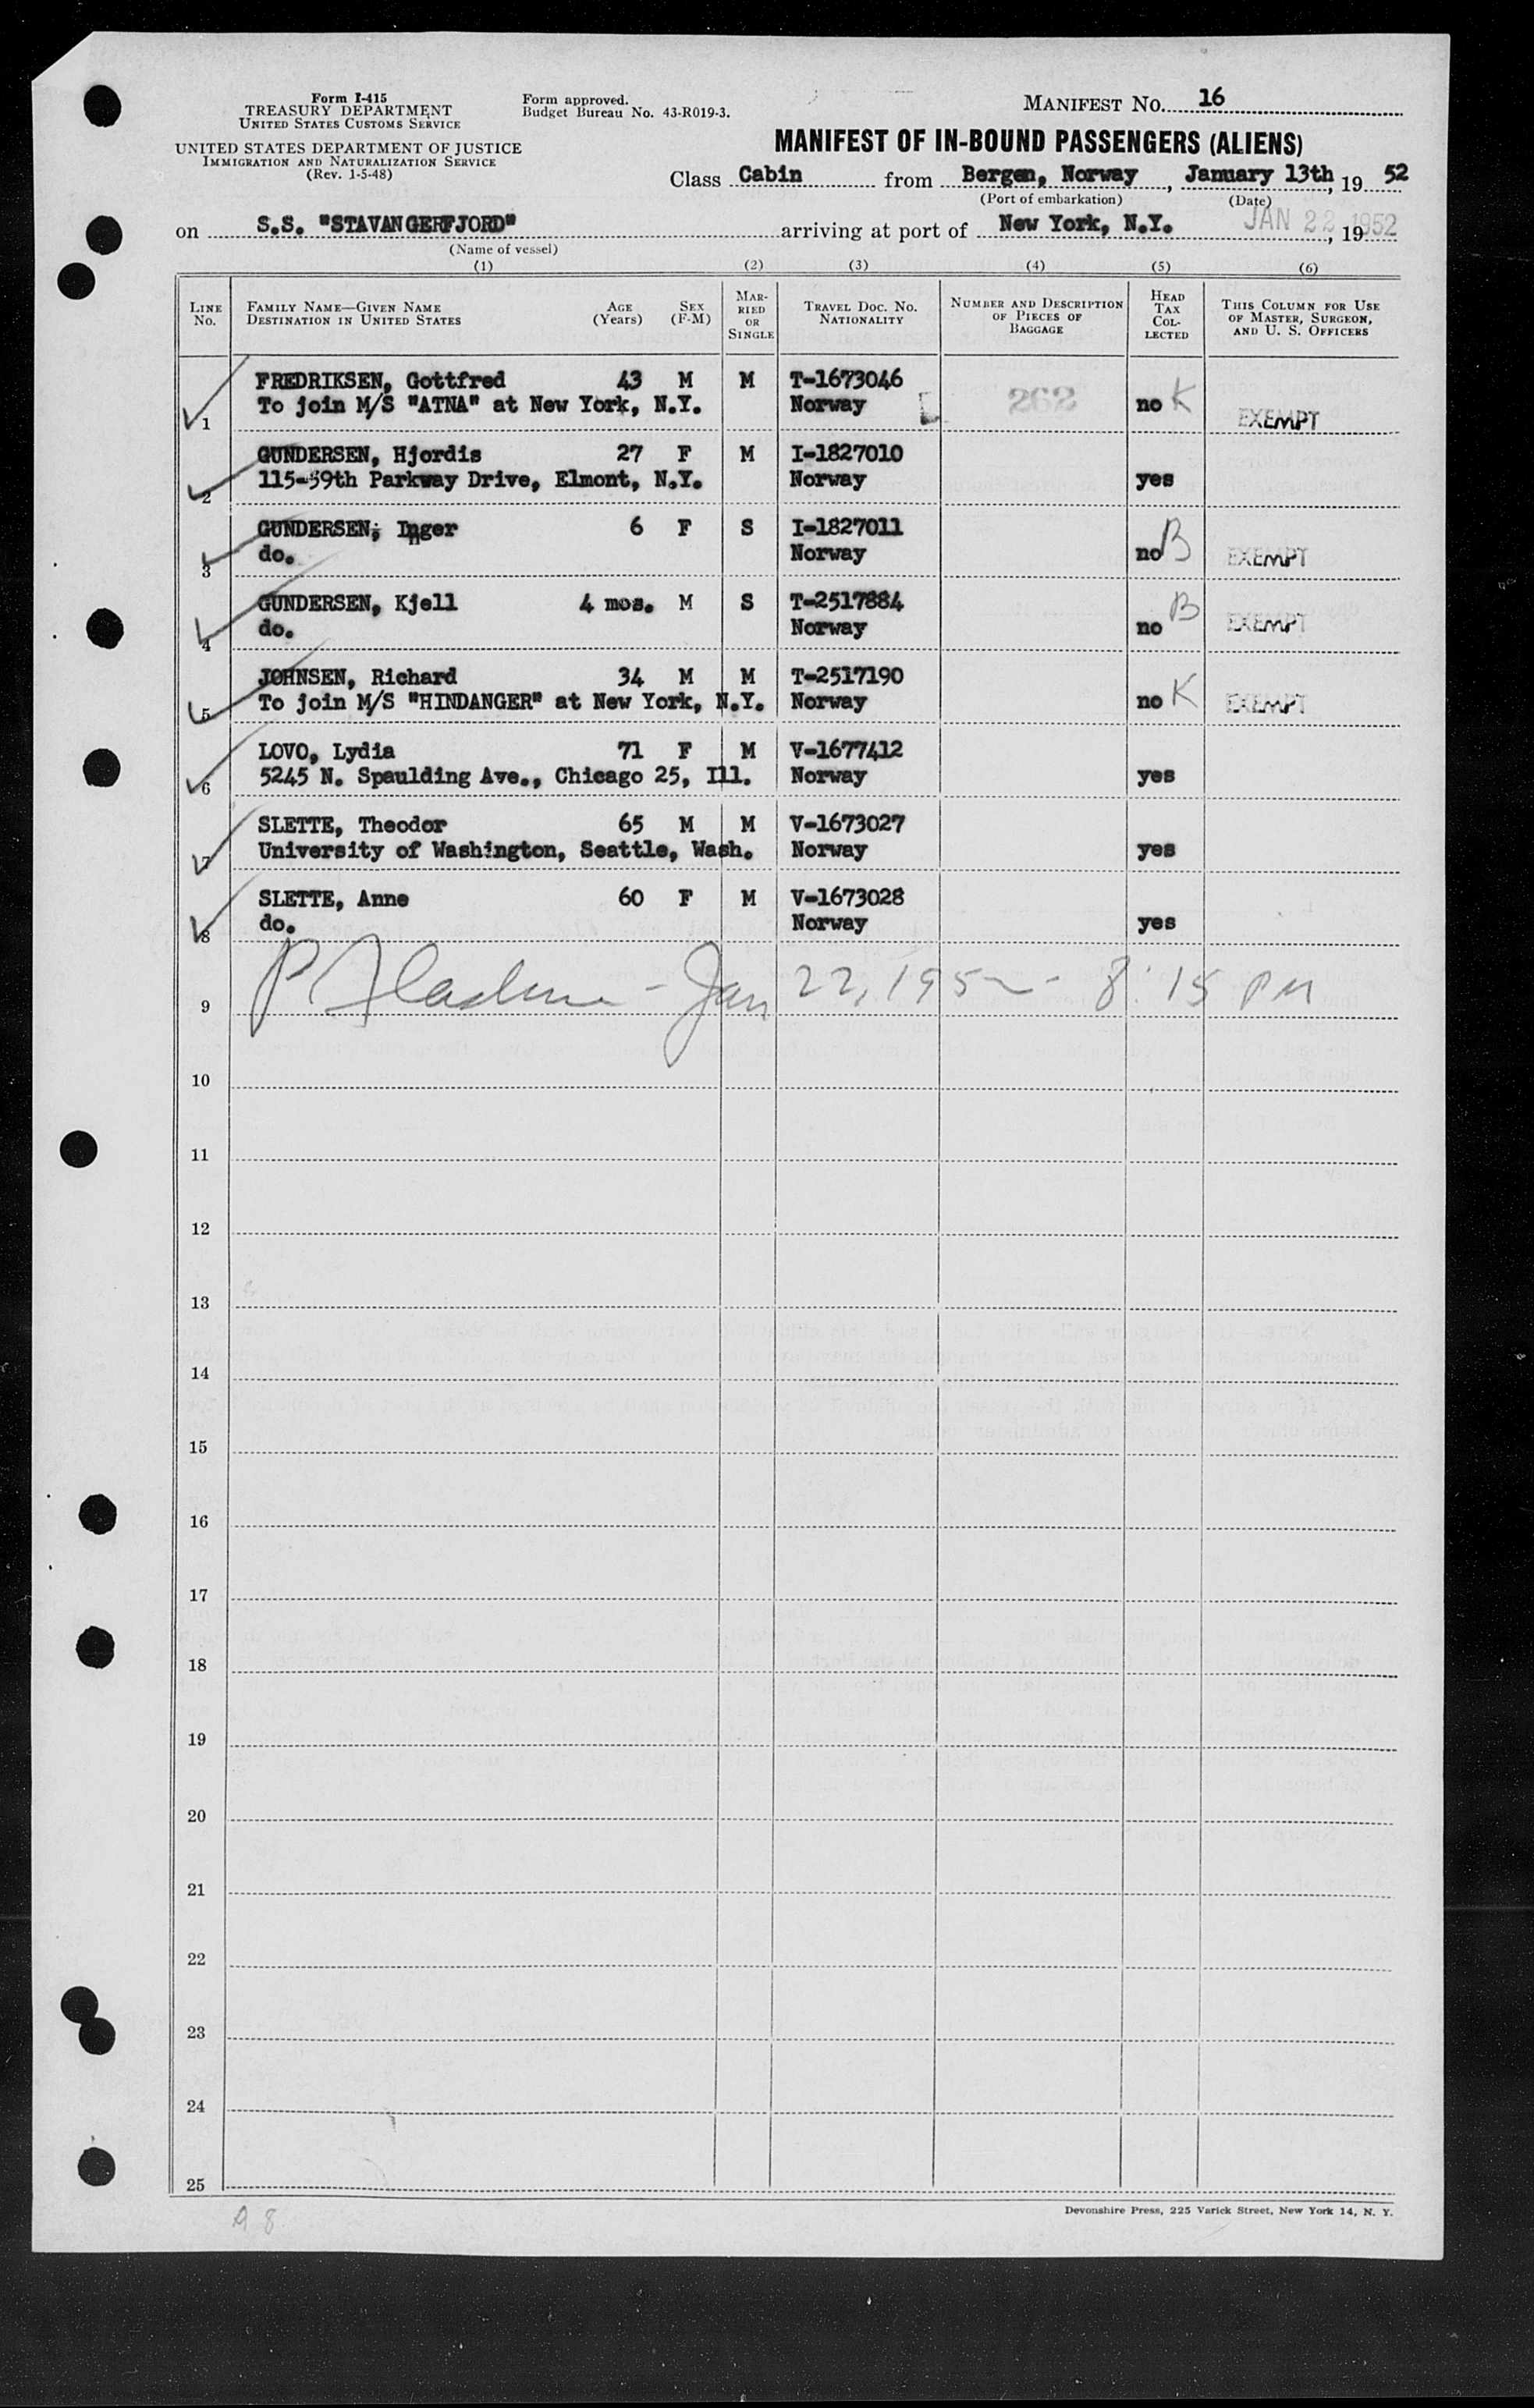 Form I-415
TREASURY DEPARTMENT
UNITED STATES CUSTOMS SERVICE
UNITED STATES DEPARTMENT OF JUSTICE
IMMIGRATION AND NATURALIZATION SERVICE
(Rev. 1-5-48)
Form approved.
Budget Bureau No. 43-R019-3.
MANIFEST NO. 16
MANIFEST OF IN-BOUND PASSENGERS (ALIENS)
Class Cabin from Bergen, Norway, January 13th, 19 52
(Port of embarkation) (Date)
on S.S. "STAVANGERFJORD" arriving at port of New York, N.Y. JAN 22 1952, 19
(Name of vessel)
(1) (2) (3) (4) (5) (6)
LINE No. FAMILY NAME—GIVEN NAME DESTINATION IN UNITED STATES AGE (Years) SEX (F-M) MARRIED OR SINGLE TRAVEL DOC. NO. NATIONALITY NUMBER AND DESCRIPTION OF PIECES OF BAGGAGE HEAD TAX COLLECTED THIS COLUMN FOR USE OF MASTER, SURGEON, AND U. S. OFFICERS
FREDRIKSEN, Gottfred 43 M M T-1673046 262
1 To join M/S "ATNA" at New York, N.Y. Norway no K EXEMPT
GUNDERSEN, Hjordis 27 F M I-1827010
2 115-59th Parkway Drive, Elmont, N.Y. Norway yes
GUNDERSEN, Inger 6 F S I-1827011
3 do. Norway no B EXEMPT
GUNDERSEN, Kjell 4 mos. M S T-2517884
4 do. Norway no B EXEMPT
JOHNSEN, Richard 34 M M T-2517190
5 To join M/S "HINDANGER" at New York, N.Y. Norway no K EXEMPT
LOVO, Lydia 71 F M V-1677412
6 5245 N. Spaulding Ave., Chicago 25, Ill. Norway yes
SLETTE, Theodor 65 M M V-1673027
7 University of Washington, Seattle, Wash. Norway yes
SLETTE, Anne 60 F M V-1673028
8 do. Norway yes
9 Jan 22, 1952 - 8:15 PM
10
11
12
13
14
15
16
17
18
19
20
21
22
23
24
25
Devonshire Press, 225 Varick Street, New York 14, N. Y.
A 8